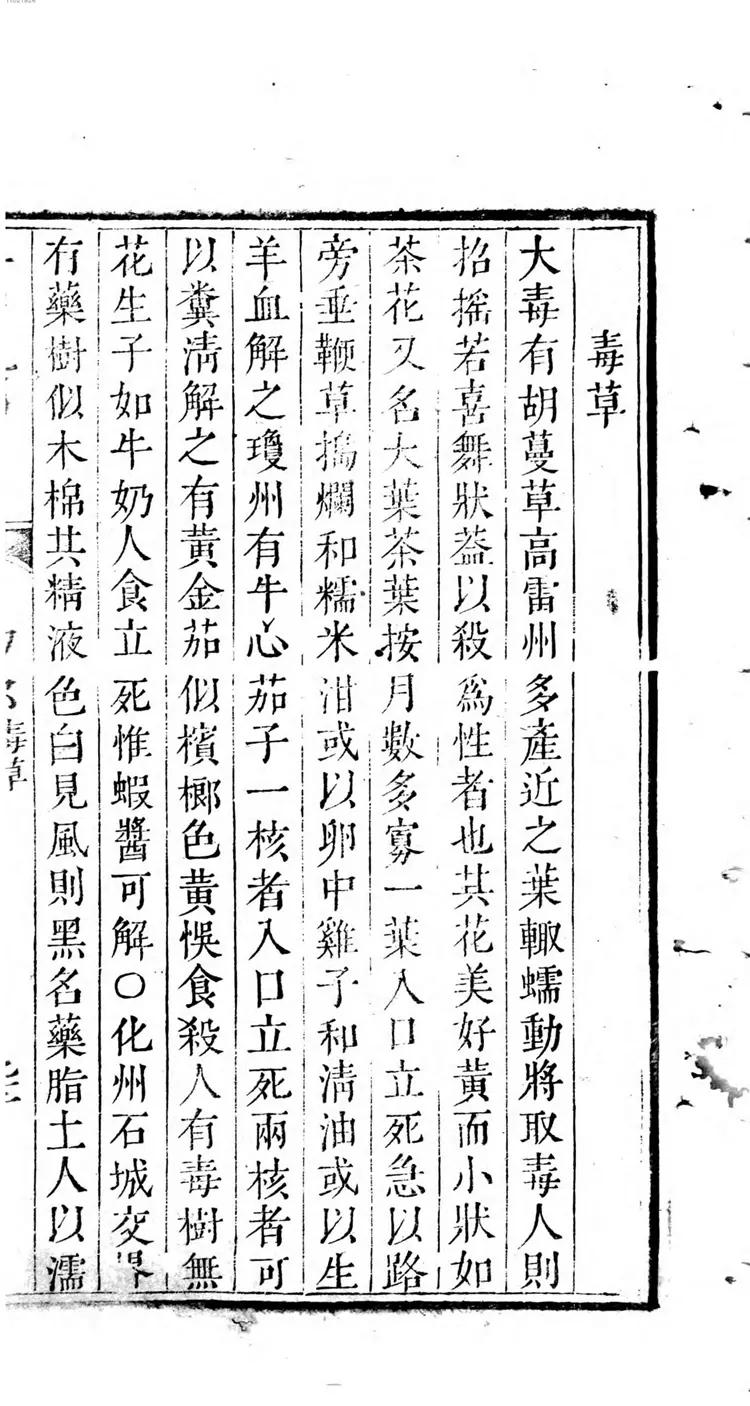 毒草
大毒有胡蔓草高雷州多產近之葉輙蠕動將取毒人則
招搖若喜舞狀葢以殺爲性者也其花美好黃而小狀如
茶花又名大葉茶葉按月數多寡一葉入口立死急以路
旁垂鞭草搗爛和糯米泔或以卵中雞子和淸油或以生
羊血解之瓊州有牛心茄子一核者入口立死兩核者可
以糞淸解之有黃金茄似檳榔色黃悞食殺人有毒樹無
花生子如牛奶人食立死惟蝦醬可解○化州石城交界
有藥樹似木棉共精液色白見風則黑名藥脂土人以濡
毒草